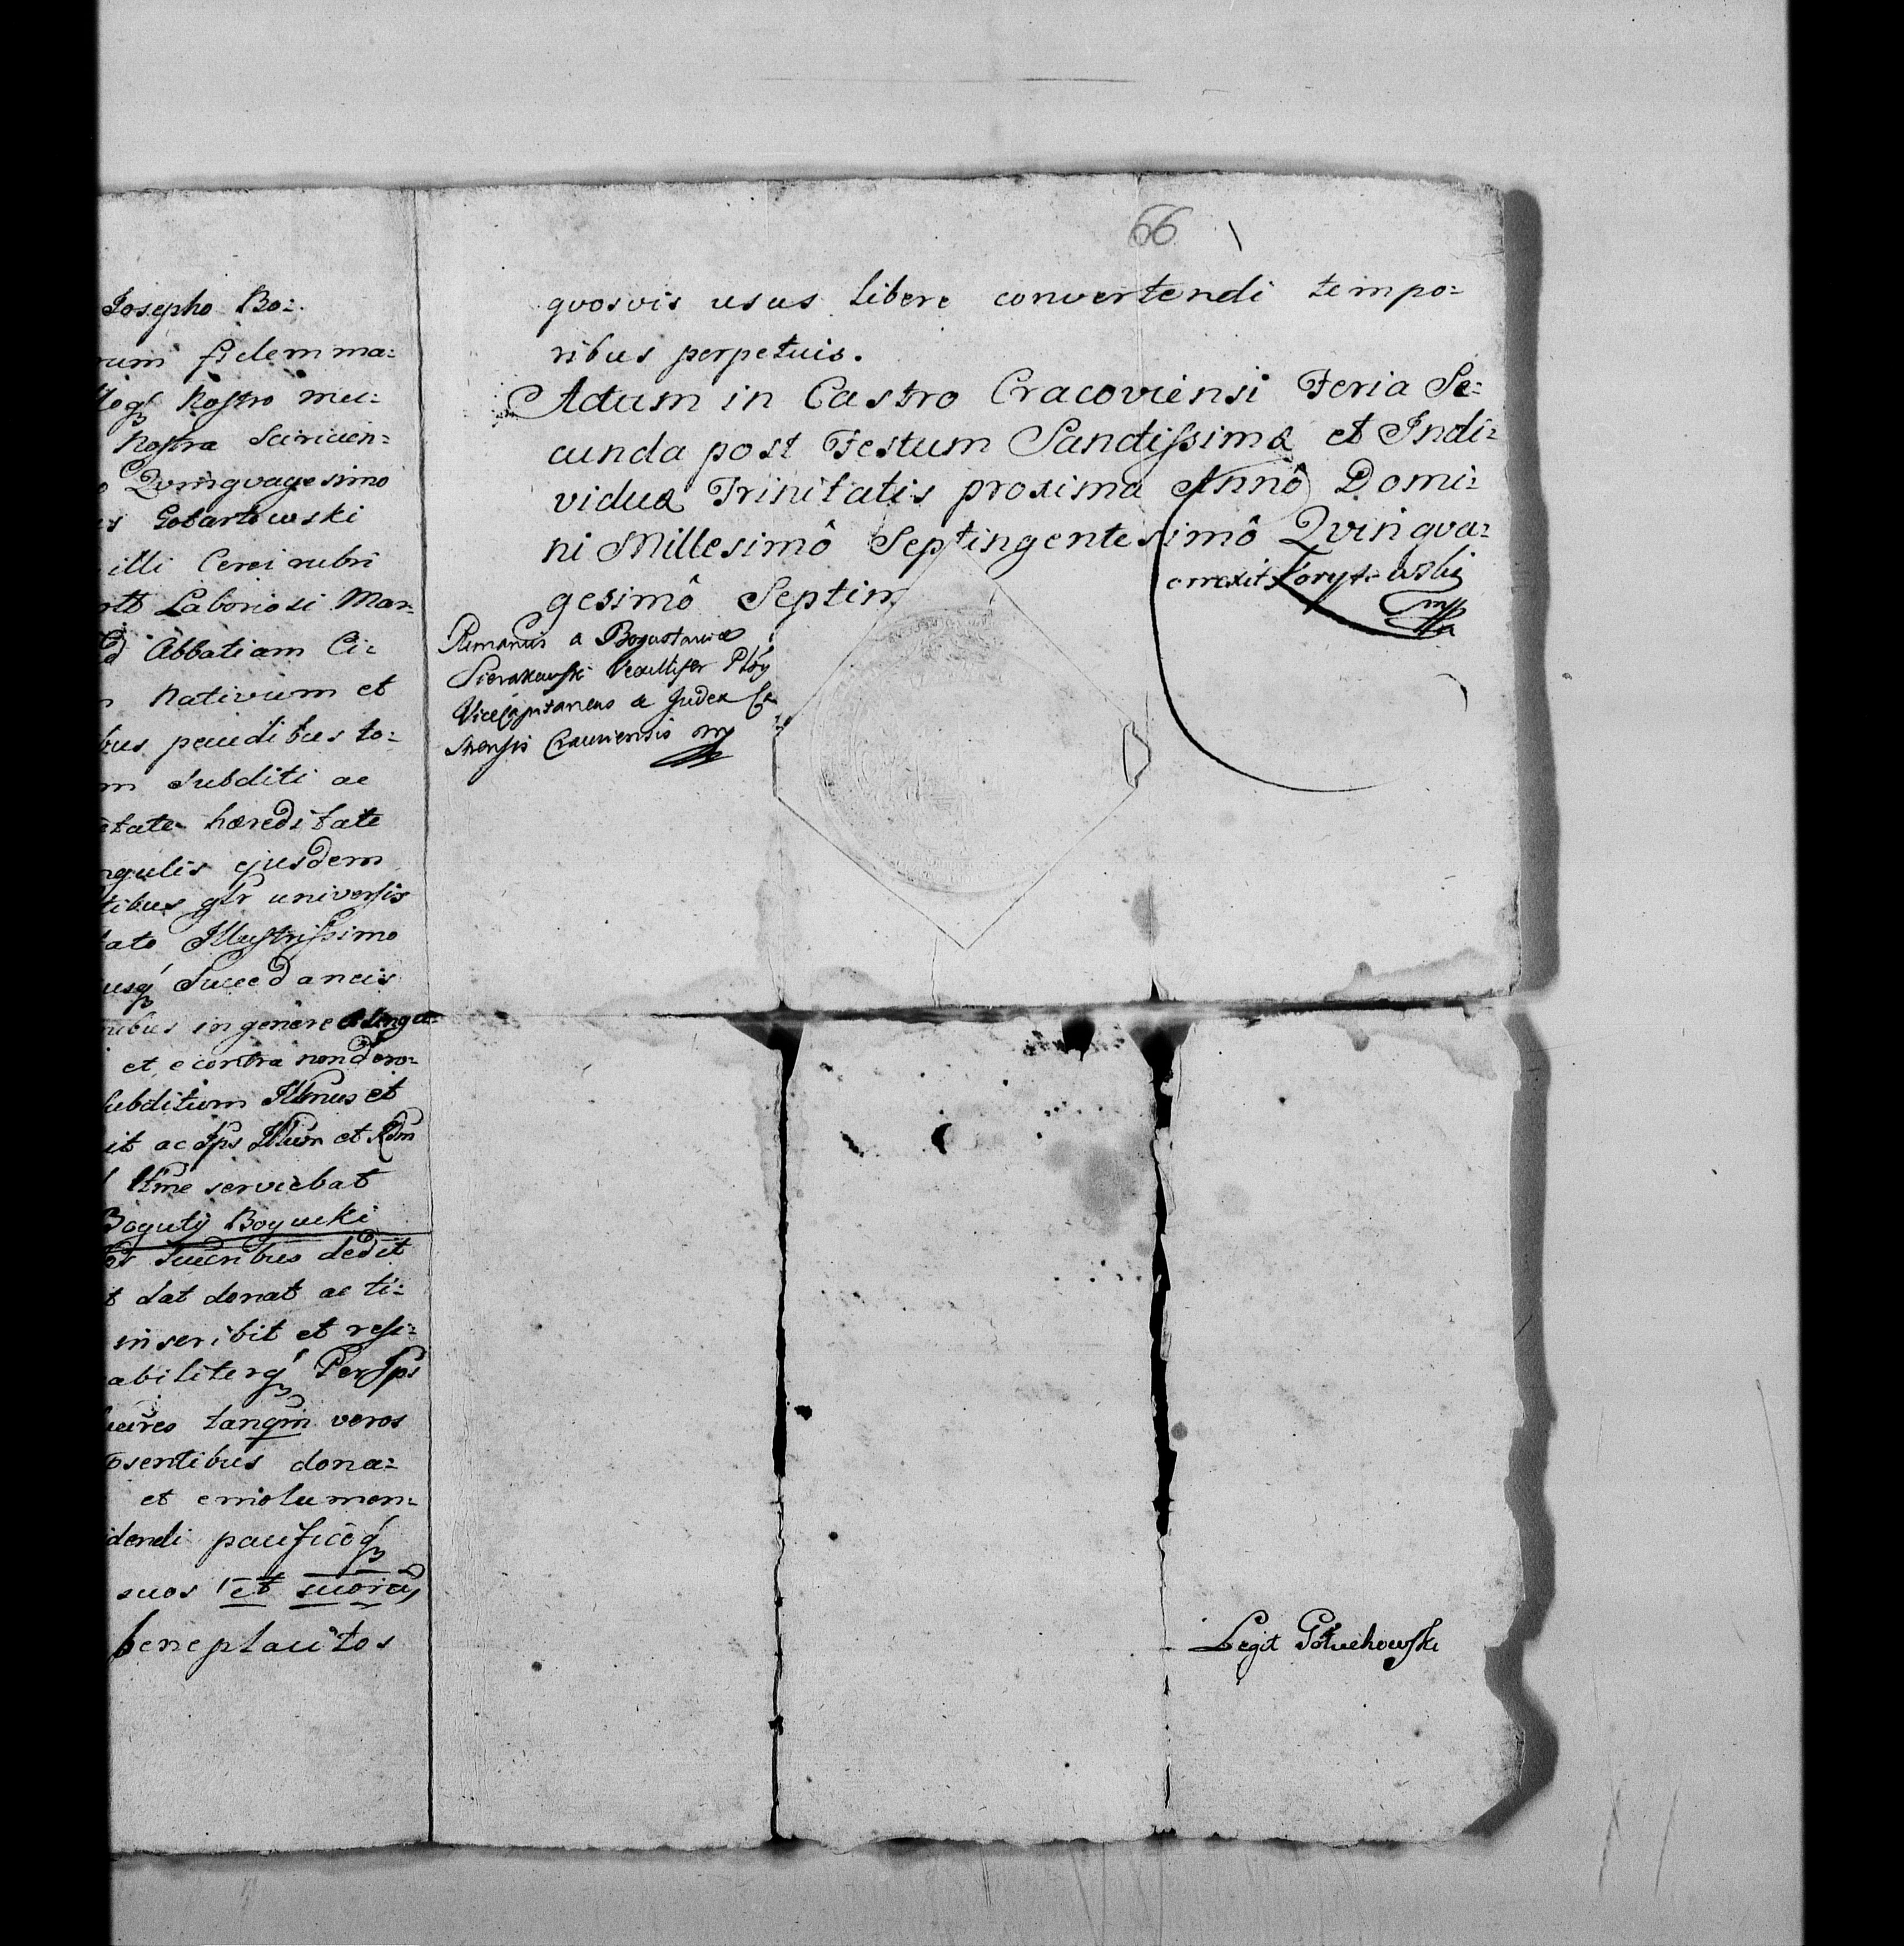 Josepho Bo=
rum fidem ma=
Nostro mei=
Nostra
Qvinqvagesimo
Gobartowski
illi Cerei rubri
Laboriosi Mar=
Abbatiam Ci=
Nativum et
bus pendibus to=
m Subditi ac
etate hæreditate
ngulis ejusdem
tibus glr universis
ato Illustrissimo
usq Succedaneis
nibus in genere
et e contra non dero=
Subditum Illmus et
it ac Ips Illum et Rdm
serviebat
Boguty Bogucki
Succribus dedit
t dat donat ac ti=
inscribit et resi=
abiliterq Per Ips
tanqm veros
bsentibus dona=
et emolumen=
idendi pacificeq
suos et suorum
beneplacitos
66
qvosvis usus libere convertendi tempo=
ribus perpetuis.
Actum in Castro Cracoviensi Feria Se=
cunda post Festum Sanctissimæ et Indi=
viduæ Trinitatis proxima Annô Domi=
ni Millesimô Septingentesimô Qvinqva=
gesimô Septim
correxit
Romanus a Bogustawice
Sierakowski Vexillifer
Vicecapitaneus & Judex Ca
strensis Cracoviensis mp
Legit Gołuchowski